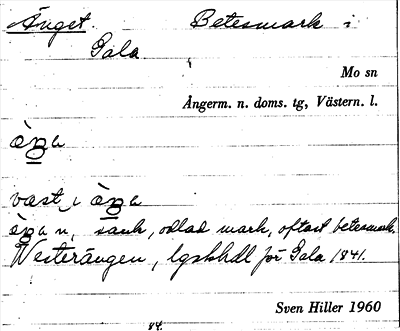 Änget. Betesmark i
Gala
Mo sn
Ångerm. n. doms. tg, Västern. l.
èŋa
væst i èŋa
èŋa n, sank, odlad mark, oftast betesmark.
Westerängen, lgskhdl för Gala 1841.
Sven Hiller 1960
84.